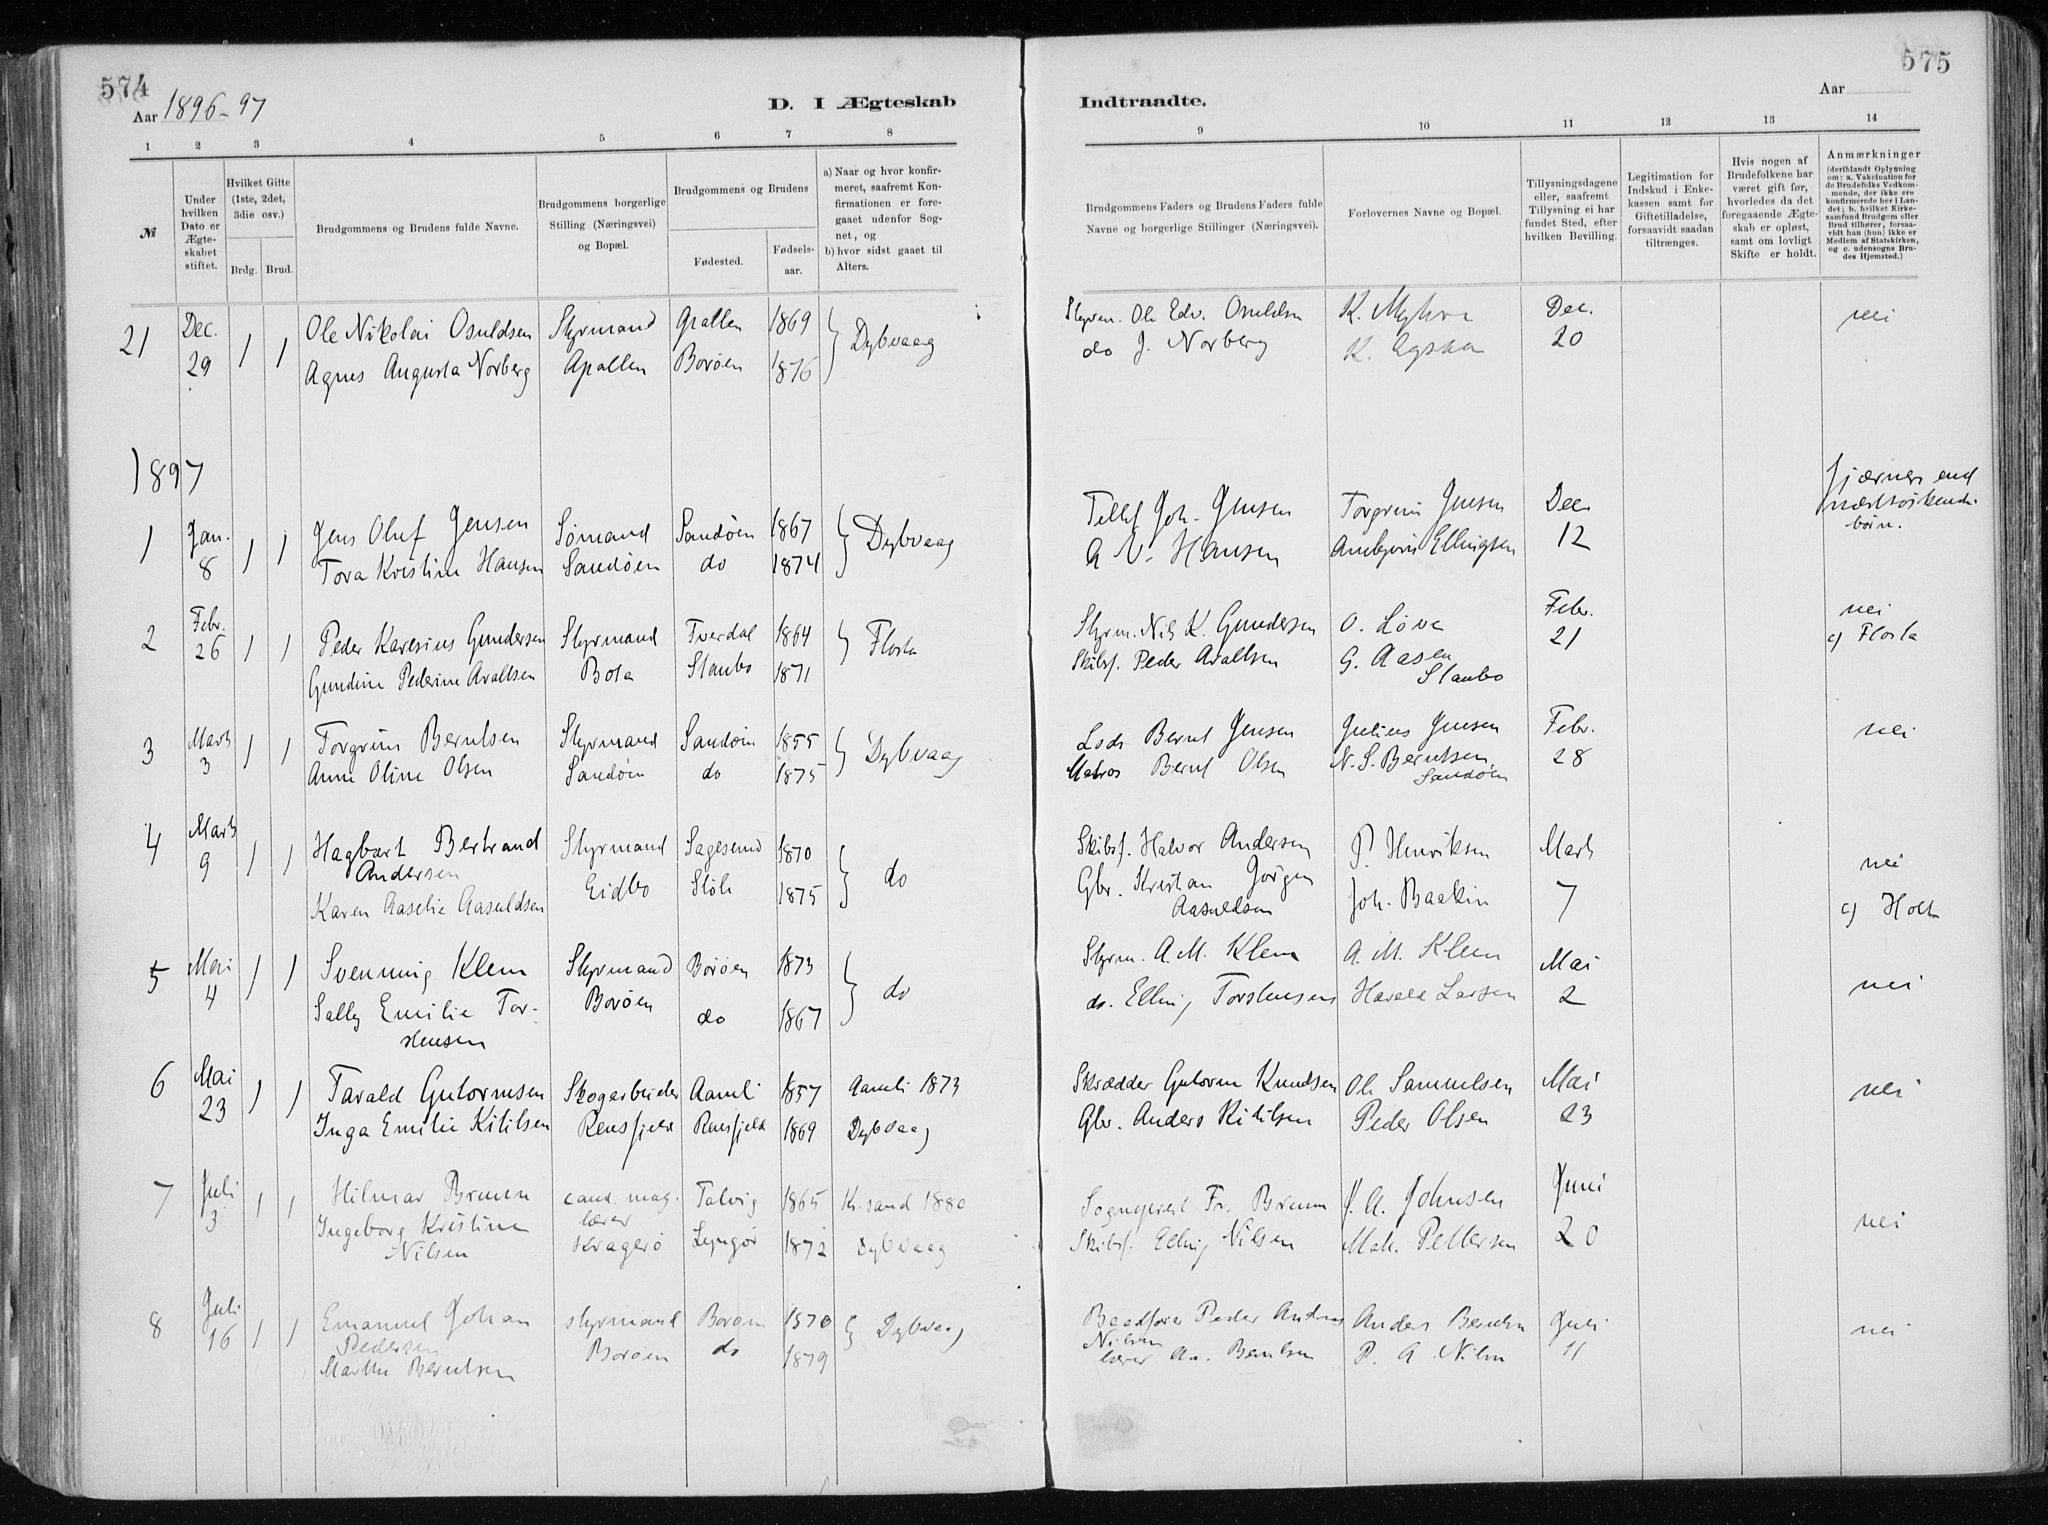 574
Aar 1896-97
D. I Ægteskab
1 2 3 4 5 6 7 8
№
Under hvilken Dato er Ægteskabet stiftet.
Hvilket Gifte (1ste, 2det, 3die osv.)
Brdg. Brud.
Brudgommens og Brudens fulde Navne.
Brudgommens borgerlige Stilling (Næringsvei) og Bopæl.
Brudgommens og Brudens
Fødested. Fødselsaar.
a) Naar og hvor konfirmeret, saafremt Konfirmationen er foregaaet udenfor Sognet, og
b) hvor sidst gaaet til Alters.
21 Dec. 29 1 1 Ole Nikolai Osuldsen Styrmand 1869 Dybvaag
Agnes Augusta Norberg Borøen 1876
1897
1 Jan. 8 1 1 Jens Oluf Jensen Sømand Sandøen 1867 Dybvaag
Tora Kristine Hansen Sandøen do 1874
2 Febr. 26 1 1 Peder Karesius Gundersen Styrmand Tverdal 1864 Flosta
Gundine Pederine Avaltsen Bota Staubo 1871
3 Marts 3 1 1 Torgrim Berntsen Styrmand Sandøen 1855 Dybvaag
Anne Oline Olsen Sandøen do 1875
4 Marts 9 1 1 Hagbart Bertrand Styrmand Sagesund 1870 do
Andersen
Karen Aaselie Aasuldsen Eidbo 1875
5 Mai 4 1 1 Svenning Klem Styrmand Borøen 1873 do
Sally Emilie Tor- Borøen do 1867
stensen
6 Mai 23 1 1 Tarald Gutormsen Skogarbeider Aamli 1857 Aamli 1873
Inga Emilie Kitilsen Rensfjeld Rensfjeld 1869 Dybvaag
7 Juli 3 1 1 Hilmar Bruun cand. mag. Talvig 1865 Kr.sand 1880
lærer
Ingeborg Kristine Kragerø Lyngør 1872 Dybvaag
Nilsen
8 Juli 16 1 1 Emanuel Johan styrmand Borøen 1870 Dybvaag
Pedersen
Marthe Berntsen Borøen do 1879
575
Indtraadte.
Aar
9 10 11 12 13 14
Brudgommens Faders og Brudens Faders fulde Navne og borgerlige Stillinger (Næringsvei).
Forlovernes Navne og Bopæl.
Tillysningsdagene eller, saafremt Tillysning ei har fundet Sted, efter hvilken Bevilling.
Legitimation for Indskud i Enkekassen samt for Giftetilladelse, forsaavidt saadan tiltrænges.
Hvis nogen af Brudefolkene har været gift før, hvorledes da det foregaaende Ægteskab er opløst, samt om lovligt Skifte er holdt.
Anmærkninger (deriblandt Oplysning om: a. Vakcination for de Brudefolks Vedkommende, der ikke ere konfirmerede her i Landet; b. hvilket Kirkesamfund Brudgom eller Brud tilhører, forsaavidt han (hun) ikke er Medlem af Statskirken, og c. udensogns Brudes Hjemsted.)
Styrm. Ole Edv. Osuldsen Dec. nei
do J. Norberg 20
Tellef Joh. Jensen Torgrim Jensen Dec. fjærnere end næstsøskendebørn.
A N. Hansen Ellingsen 12
Styrm. Nils K. Gundersen O. Løve Febr. nei
Skibsf. Peder Avaltsen G. Aasen 21 c) Flosta
Staubo
Lods Bernt Jensen Julius Jensen Febr. nei
Matros Bernt Olsen N. S. Berntsen 28
Sandøen
Skibsf. Halvor Andersen P. Henriksen Marts nei
Gbr. Kristian Jørgen Joh. 7 c) Holt
Aasuldsen
Styrm. A. M. Klem A. M. Klem Mai
do. Elling Torstensen Harald Larsen 2 nei
Skrædder Gutorm Knudsen Ole Samuelsen Mai nei
Gbr. Anders Kitilsen Peder Olsen 23
Sogneprest Fr. Bruun J. A. Johnsen Juni
Skibsf. Elling Nilsen Mak. Pettersen 20 nei
Baadfører Peder Andreas Anders Berntsen Juli nei
Nilsen
lærer An. Berntsen P. A Nilsen 11